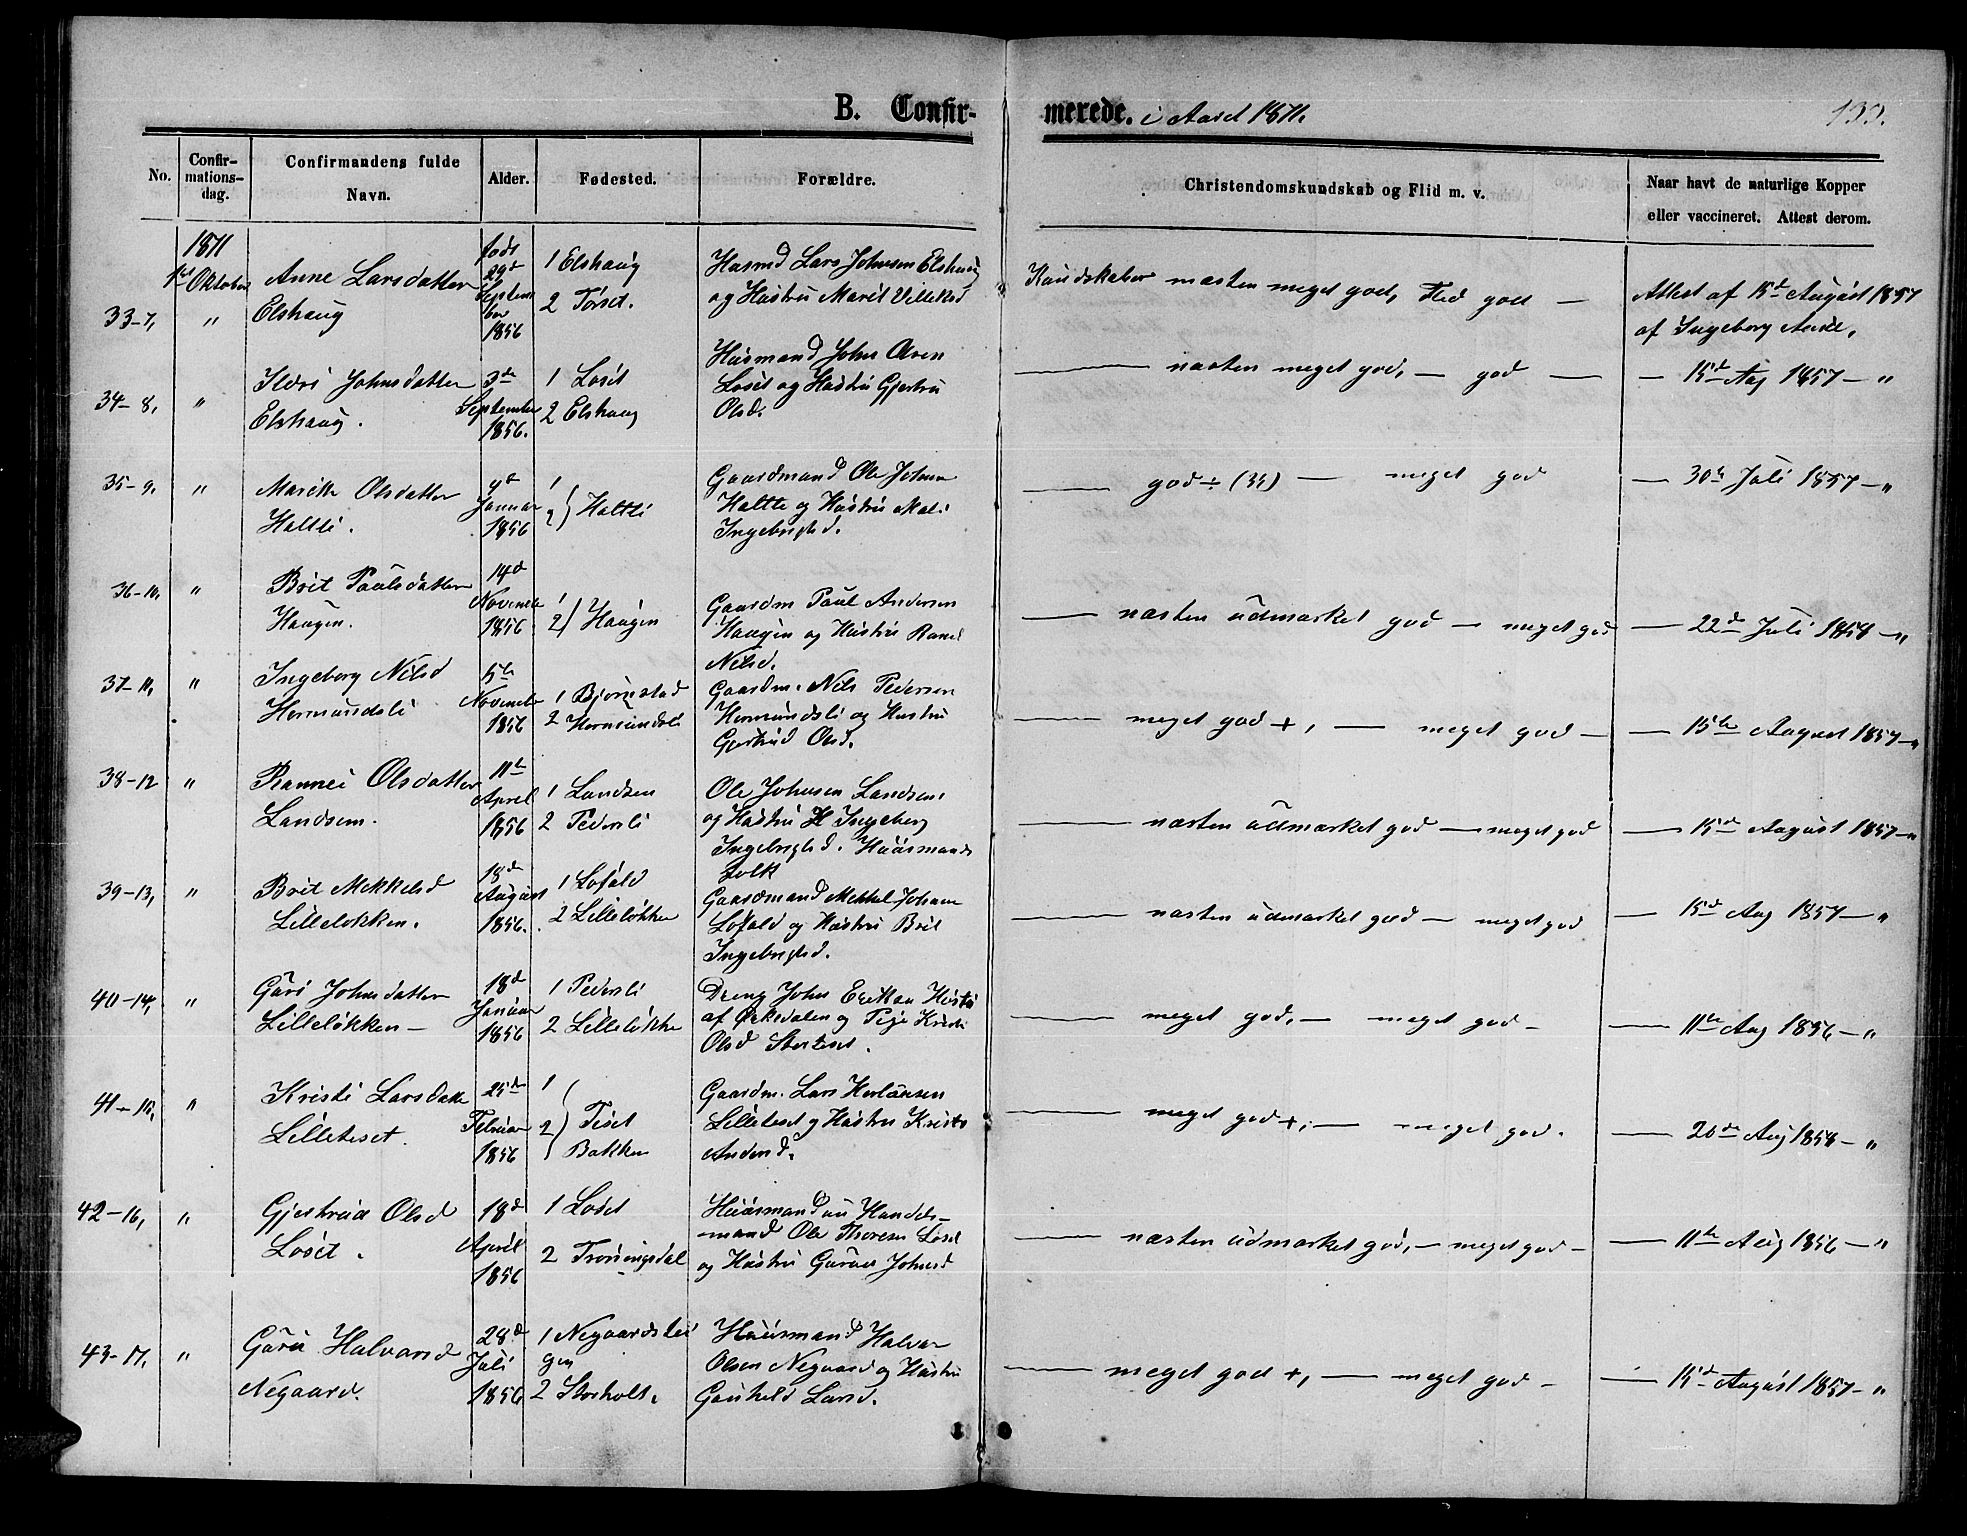 B. Confirmerede. i Aaret 1871.
133.
No.
Confirmationsdag.
Confirmandens fulde Navn.
Alder.
Fødested.
Forældre.
Christendomskundskab og Flid m. v.
Naar havt de naturlige Kopper eller vaccineret. Attest derom.
1871
1ste Oktober
33-7, " Anne Larsdatter
Elshaug
født 29d September 1856
1 Elshaug
2 Torset.
Husmd Lars Johnsen Elshaug
og Hustru Marit
Kundskaber næsten meget god, Flid god —
Attest af 15de August 1857
af Ingeborg
34-8, " Ildri Johnsdatter
Elshaug.
3de September 1856.
1 Løset
2 Elshaug
Huusmand John Olsen
Løset og Hustru Gjertru
Olsd.
— næsten meget god, — god —
— 15de Aug 1857 — "
35-9, " Marit Olsdatter
Haltli.
9de Januar 1856
1
2 } Haltli
Gaardmand Ole Johnsen
Haltli og Hustru Mali
Ingebrigtsd.
— god ÷ (3½) — meget god
— 30te Juli 1857 — "
36-10, " Brit Paulsdatter
Haugen.
14d November 1856
1
2 } Haugen
Gaardm Paul Andersen
Haugen og Hustru Ranei
Nilsd.
— næsten udmærket god — meget god
— 22de Juli 1858 — "
37-11, " Ingeborg Nilsd
Hermundsli
5te November 1856
1 Bjørnstad
2 Hermundsli
Gaardm. Nils Pedersen
Hermundsli og Hustru
Gjertrud Olsd.
— meget god +, — meget god —
— 15te August 1857 — "
38-12 " Rannei Olsdatter
Landsem.
11te April 1856
1 Landsem
2 Pedersli
Ole Johnsen Landsem
og Hustru Ingeborg
Ingebrigtsd. Huusmands
Folk
— næsten udmærket god — meget god
— 15de August 1857 — "
39-13, " Brit Mekkelsd
Lilleløkken.
18de August 1856.
1 Lofald
2 Lilleløkken
Gaardmand Mekkel Johnsen
Lofald og Hustru Brit
Ingebrigtsd.
— næsten udmærket god — meget god
— 15d Aug 1857 — "
40-14, " Guri Johnsdatter
Lilleløkken —
18d Januar 1856
1 Pedersli
2 Lilleløkke
Dreng John Eriksen
af Orkedalen og Pige Kristi
Olsd
— meget god, — meget god —
— 11te Aug 1856 — "
41-15, " Kristi Larsdatte
Lilleteset.
25de Februar 1856
1
2 } Teset
Bakken
Gaardm. Lars
Lilleteset og Hustru Kristi
Andersd.
— meget god +, — meget god.
— 20de Aug 1858 — "
42-16, " Gjertrud Olsd
Løset.
18d April 1856
1 Løset
2
Huusmand Handels-
mand Ole Thoresen Løset
og Hustru Johnsd
— næsten udmærket god, — meget god —
— 11te Aug 1856 — "
43-17, " Guru Halvorsd
Negaard.
28d Juli 1856
1
2 Storholt.
Huusmand Halvor
Olsen Negaard og Hustru
Gunhild Larsd.
— meget god +, — meget god —
— 15d August 1857 — "